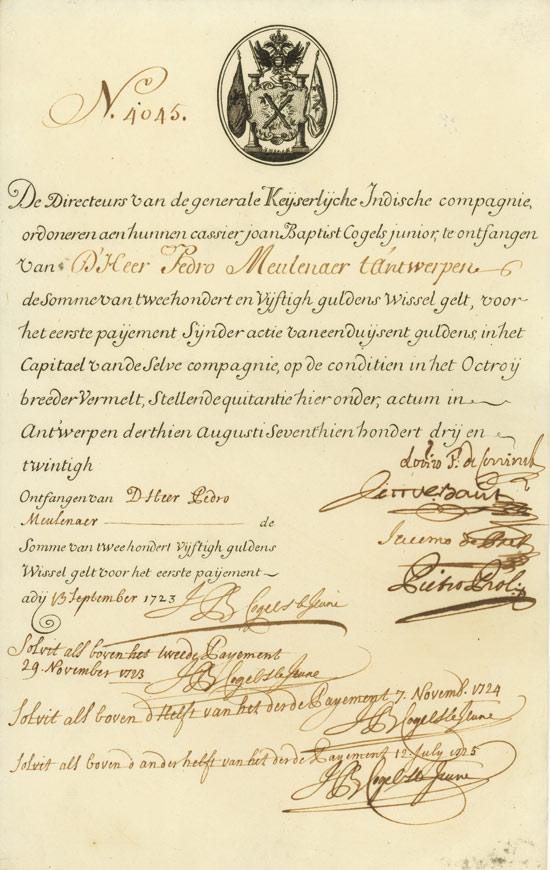 N. 4045.
De Directeurs van de generale Keyserlÿche Indische compagnie,
ordoneren aen hunnen cassier joan Baptist Cogels junior, te ontfangen
van D'Heer Pedro Meulenaer t'Antwerpen
de Somme van tweehondert en Vÿftigh guldens Wissel gelt, voor
het eerste paÿement Sÿnder actie van eenduÿsent guldens, in het
Capitael van de Selve compagnie, op de conditien in het Octroÿ
breeder Vermelt, Stellende quitantie hier onder, actum in
Antwerpen derthien Augusti Seventhien hondert drÿ en
twintigh
Ontfangen van D Heer Pedro
Meulenaer de
Somme van twee hondert Vÿftigh guldens
Wissel gelt voor het eerste paÿement
adÿ 13 September 1723 JB Cogels le Jeune
Solvit als boven het tweede Payement
29. November 1723 JB Cogels le Jeune
Solvit als boven d'Helft van het derde Payement 7. Novemb. 1724
JB Cogels le Jeune
Solvit als boven d ander helft van het derde Payement 12 July 1725
JB Cogels le Jeune